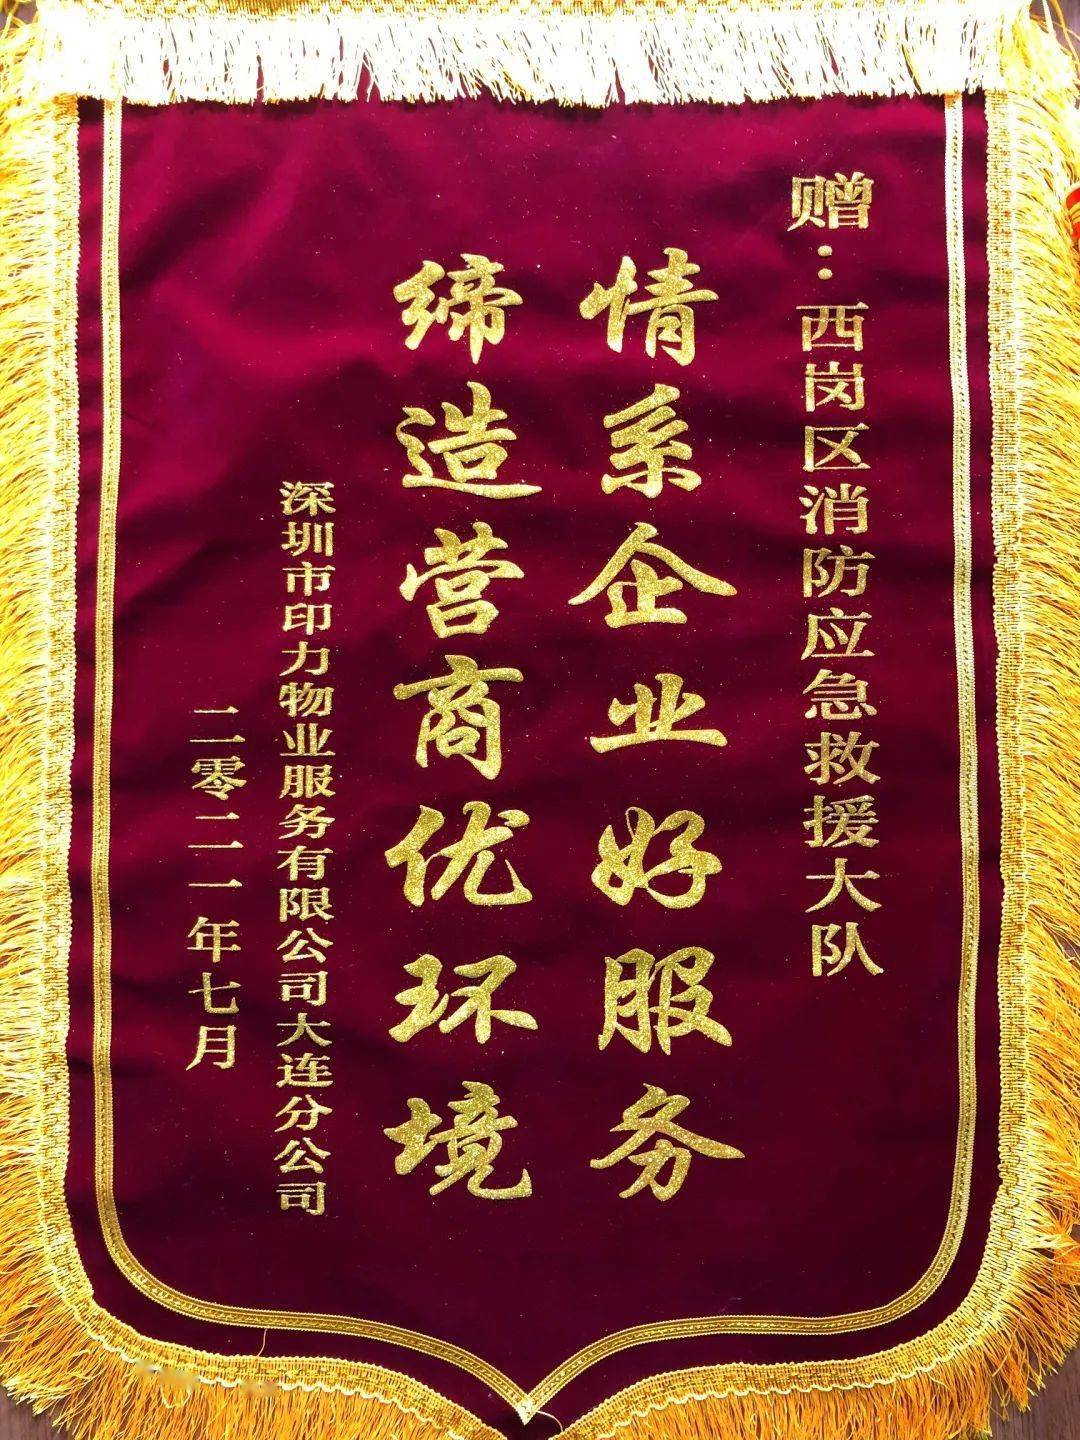 赠：西岗区消防应急救援大队
情系企业好服务
缔造营商优环境
深圳市印力物业服务有限公司大连分公司
二零二一年七月